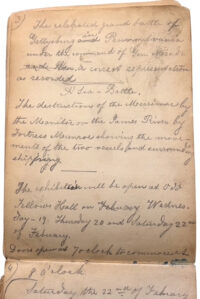 3)
The celebrated grand battle of
Gettysburg and Pennsylvania
under the command of Gen Meade
a correct representation
as recorded
A Sea - Battle.
The destructions of the Merrimac by
the Monitor on the James River by
Fortress Monroe showing the move
ments of the two vessels and surrounding
shipping.
The exhibition will be opened at Odd
Fellows Hall on February Wednes-
day - 19. Thursday 20 and Saturday 22nd
of February.
Doors open at 7 oclock to commence at
4)
8 o'clock.
Saturday the 22nd of February